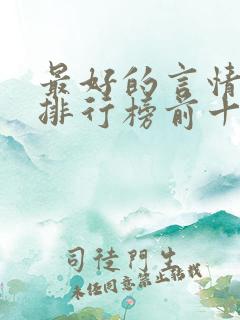 最好的言情
排行榜前十
司徒門生
未经同意禁止转载